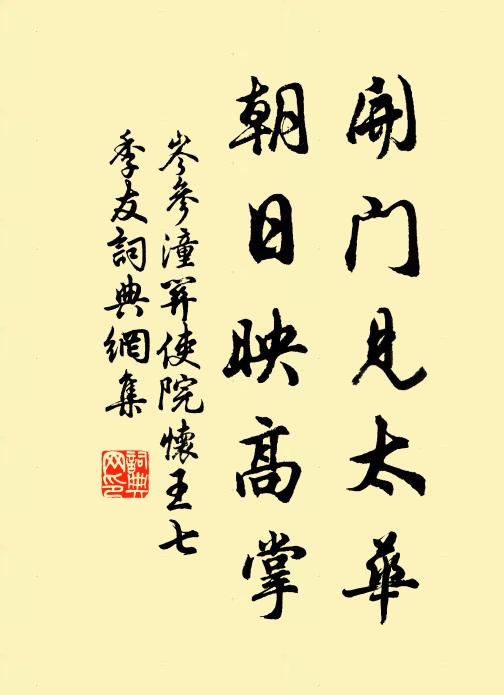 開門見太華
朝日映高掌
岑參潼關使院懷王七
季友詞典網集
詞典
网印